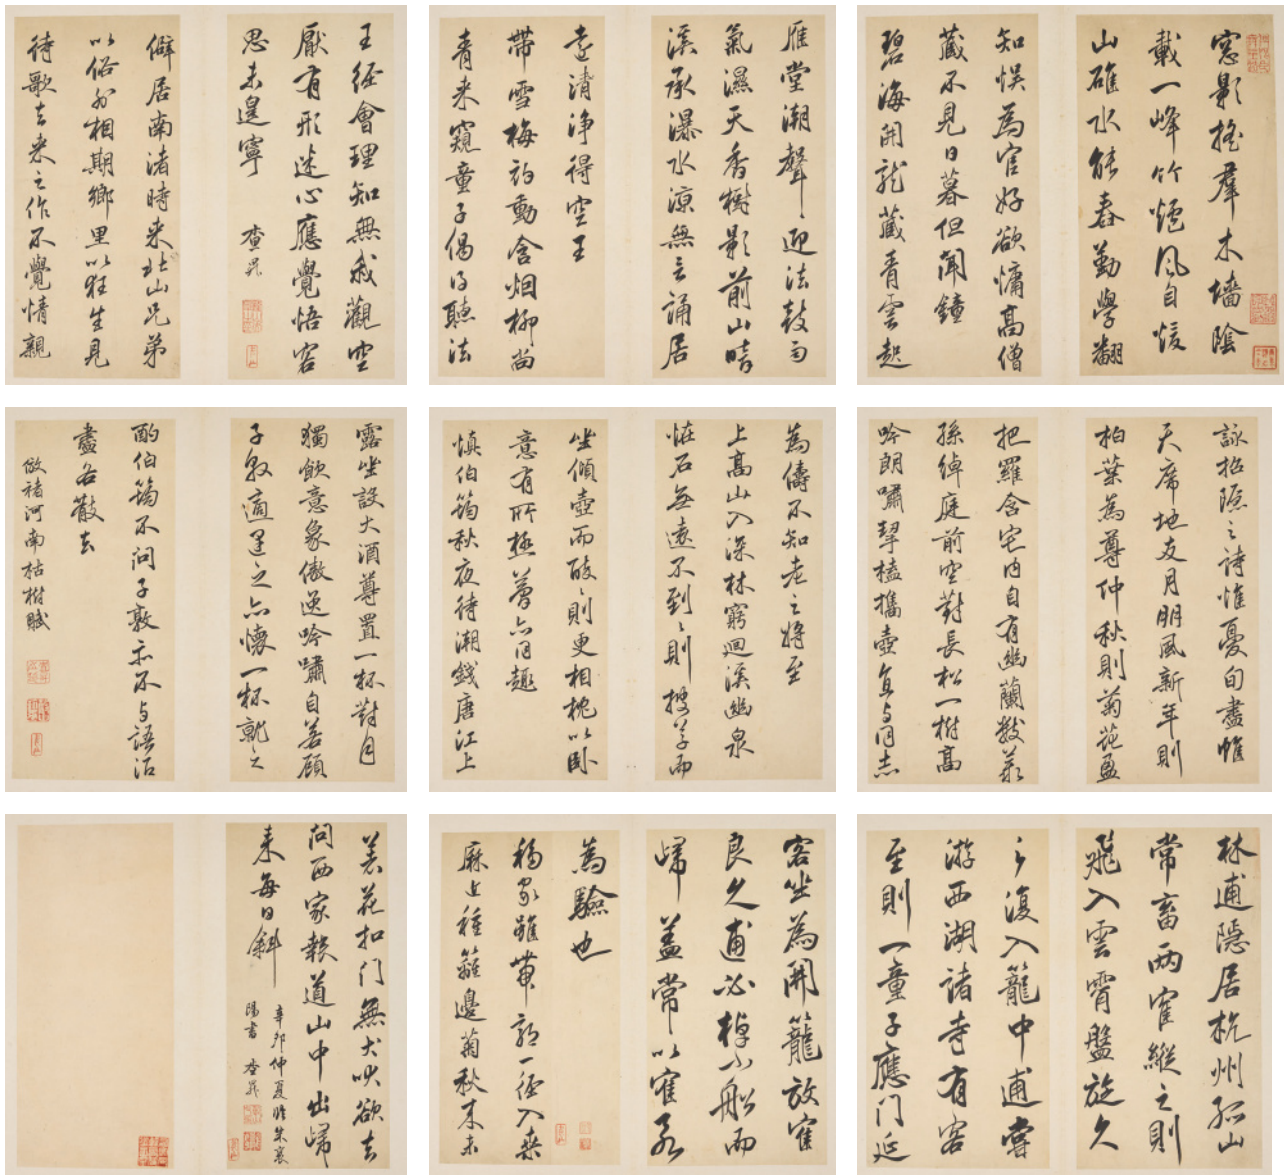 窓影搖羣木墻陰
載一峰竹爐風自煖
山礶水能舂勤學翻
知悞為官好欲慵高僧
藏不見日暮但聞鐘
碧海開龍藏青雲起
雁堂潮聲迎法鼓雨
氣濕天香樹影前山暗
溪承瀑水涼無言誦居
遠清淨得空王
帶雪梅初動含烟柳尚
青來窺童子偈得聽法
王經會理知無我觀空
厭有形迷心應覺悟客
思未遑寧 查昇
僻居南渚時來北山兄弟
以俗外相期鄉里以狂生見
待歌去來之作不覺情親
詠招隱之詩惟憂句盡帷
天席地友月朋風新年則
柏葉為尊仲秋則菊花盈
把羅含宅内自有幽蘭數叢
孫綽庭前空對長松一樹高
吟朗嘯挈榼攜壺直与同志
為儔不知老之將至
上高山入深林窮迴溪幽泉
怪石無遠不到〻則披草而
坐傾壺而醉〻則更相枕以臥
意有所極夢亦同趣
慎伯筠秋夜待潮錢唐江上
露坐設大酒尊置一杯對月
獨飲意象傲逸吟嘯自若顧
子敦適遇之亦懷一杯就之
酌伯筠不問子敦亦不与語酒
盡各散去
倣褚河南枯樹賦
林逋隱居杭州孤山
常畜兩寉縱之則
飛入雲霄盤旋久
之復入籠中逋嘗
游西湖諸寺有客
至則一童子應门延
客坐為開籠放寉
良久逋必棹小船而
歸蓋常以寉飛
為驗也
移家雖帶郭一徑入桑
麻近種籬邊菊秋來未
著花扣门無犬吠欲去
問西家報道山中出歸
來每日斜
辛卯仲夏臨朱襄
陽書 查昇